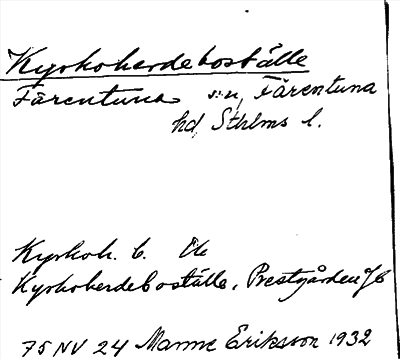 Kyrkoherdeboställe
Färentuna sn, Färentuna
hd, Sthlms l.
Kyrkoh. b. Ek
Kyrkoherdeboställe, Prestgården
75 NV 24 Manne Eriksson 1932